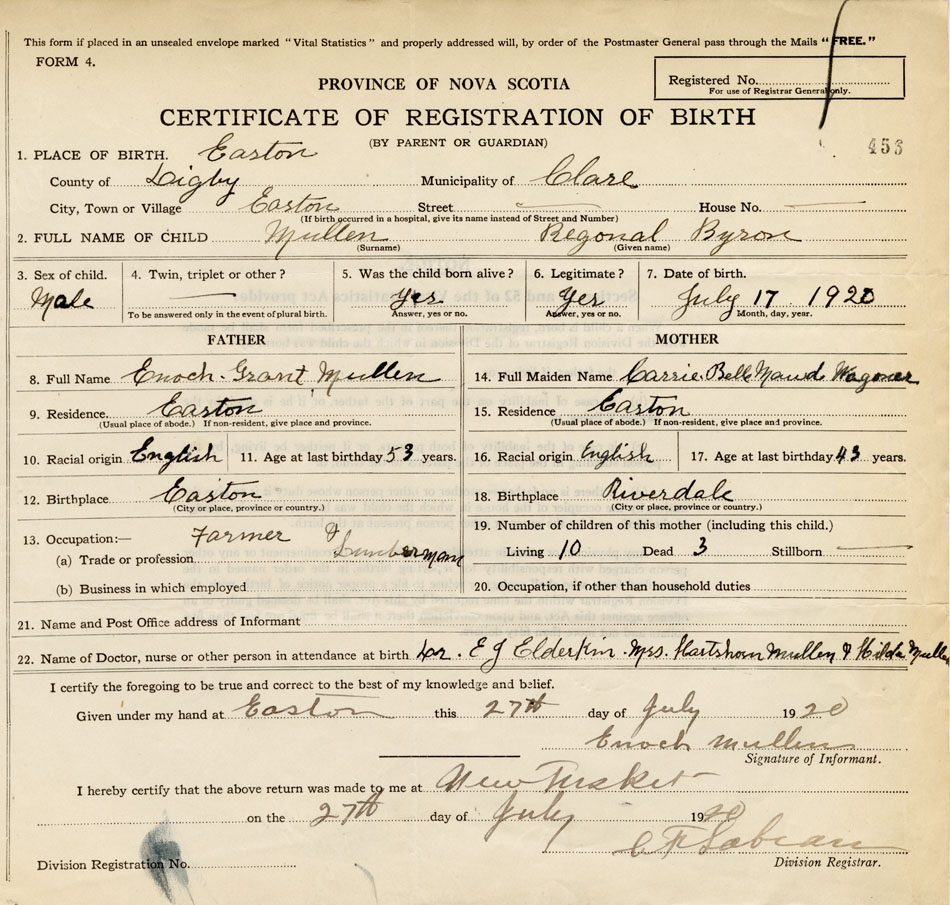 This form if placed in an unsealed envelope marked "Vital Statistics" and properly addressed will, by order of the Postmaster General pass through the Mails "FREE."
FORM 4.
Registered No.
For use of Registrar General only.
PROVINCE OF NOVA SCOTIA
CERTIFICATE OF REGISTRATION OF BIRTH
(BY PARENT OR GUARDIAN)
453
1. PLACE OF BIRTH. Easton
County of Digby Municipality of Clare
City, Town or Village Easton Street House No.
(If birth occurred in a hospital, give its name instead of Street and Number)
2. FULL NAME OF CHILD Mullen Regonal Byron
(Surname) (Given name)
3. Sex of child. 4. Twin, triplet or other? 5. Was the child born alive? 6. Legitimate? 7. Date of birth.
Male Yes Yes July 17 1920
To be answered only in the event of plural birth. Answer, yes or no. Answer, yes or no. Month, day, year.
FATHER MOTHER
8. Full Name Enoch Grant Mullen 14. Full Maiden Name Carrie Bell Maud Wagoner
9. Residence. Easton 15. Residence Easton
(Usual place of abode.) If non-resident, give place and province. (Usual place of abode.) If non-resident, give place and province.
10. Racial origin English 11. Age at last birthday 53 years. 16. Racial origin English 17. Age at last birthday 43 years.
12. Birthplace Easton 18. Birthplace Riverdale
(City or place, province or country.) (City or place, province or country.)
13. Occupation:— Farmer & Lumberman 19. Number of children of this mother (including this child.)
(a) Trade or profession Living 10 Dead 3 Stillborn
(b) Business in which employed 20. Occupation, if other than household duties
21. Name and Post Office address of Informant
22. Name of Doctor, nurse or other person in attendance at birth Dr. E J Elderkin Mrs. Hartshorn Mullen & Hilda Mullen
I certify the foregoing to be true and correct to the best of my knowledge and belief.
Given under my hand at Easton this 27th day of July 1920
Enoch Mullen
Signature of Informant.
I hereby certify that the above return was made to me at New Tusket
on the 27th day of July 1920
Division Registration No. Division Registrar.